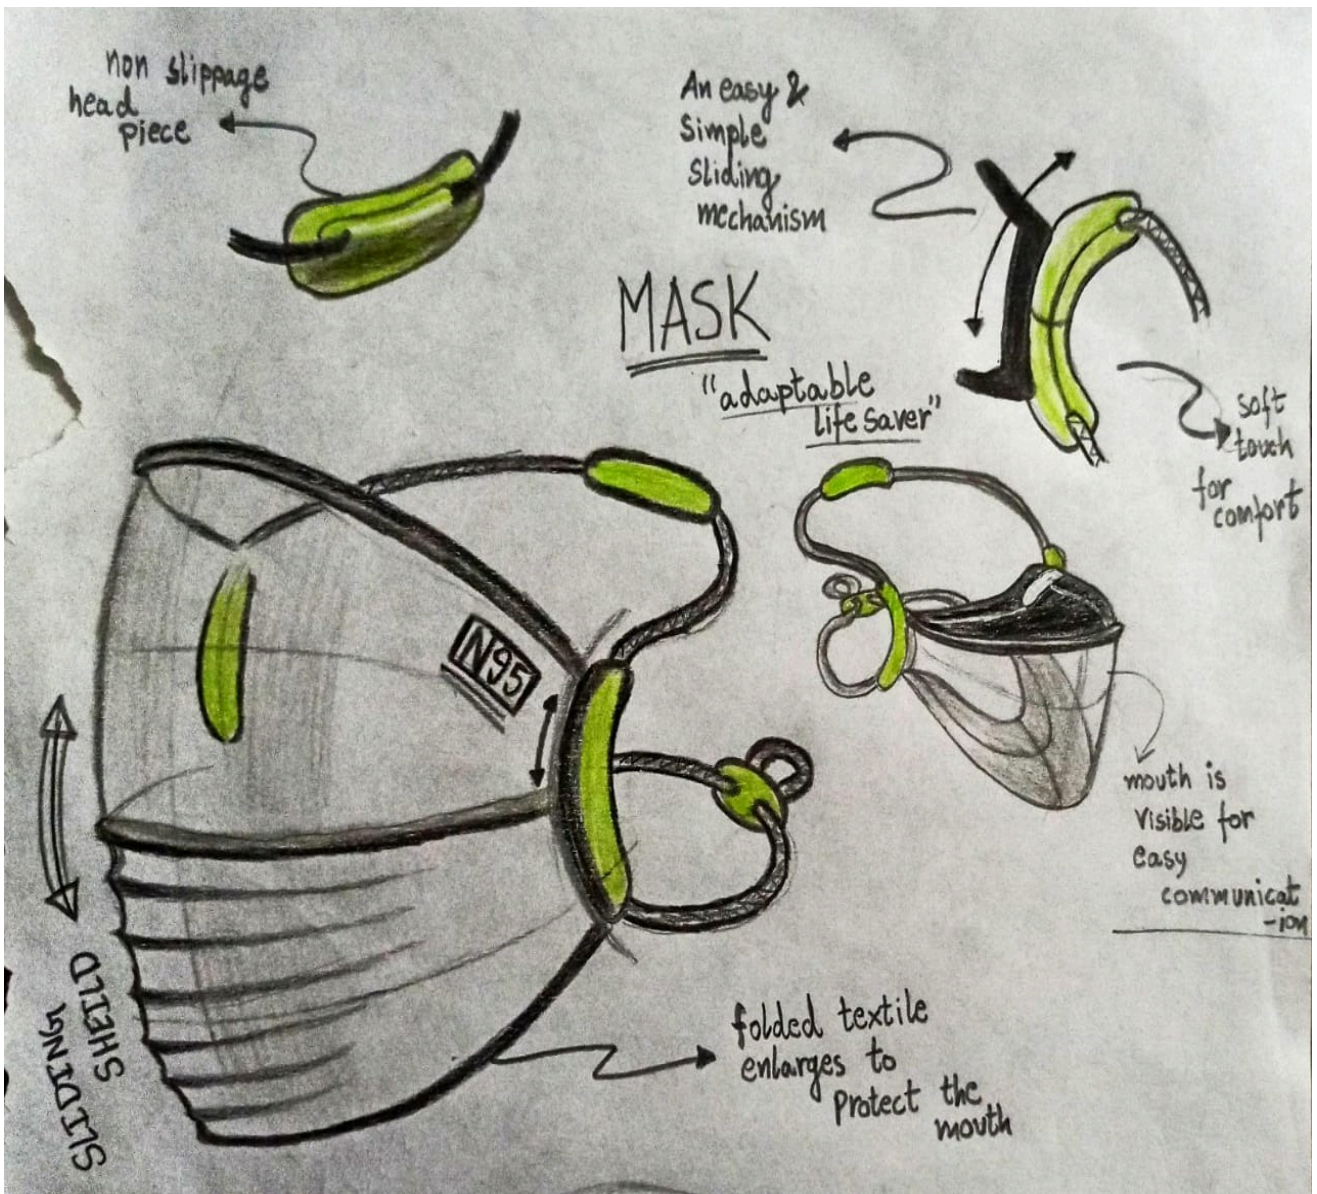 non slippage
head
piece
An easy &
Simple
Sliding
mechanism
MASK
"adaptable
life saver"
soft
touch
for
comfort
N95
mouth is
visible for
easy
communicat
-ion
SLIDING
SHEILD
folded textile
enlarges to
protect the
mouth